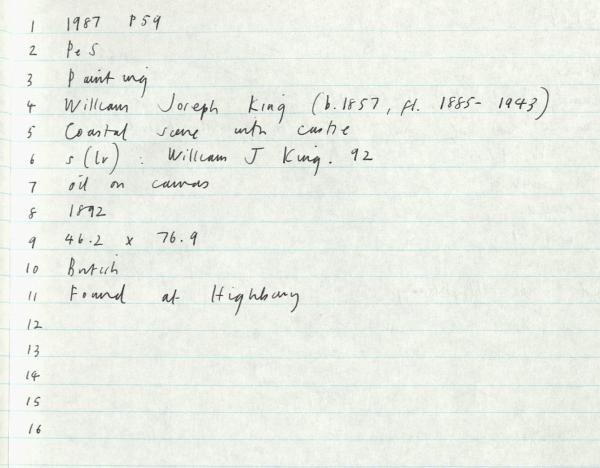 1 1987 P59
2 P&S
3 Painting
4 William Joseph King (b.1857, fl. 1885-1943)
5 Coastal scene with castle
6 s(lr) : William J King. 92
7 oil on canvas
8 1892
9 46.2 x 76.9
10 British
11 Found at Highbury
12
13
14
15
16